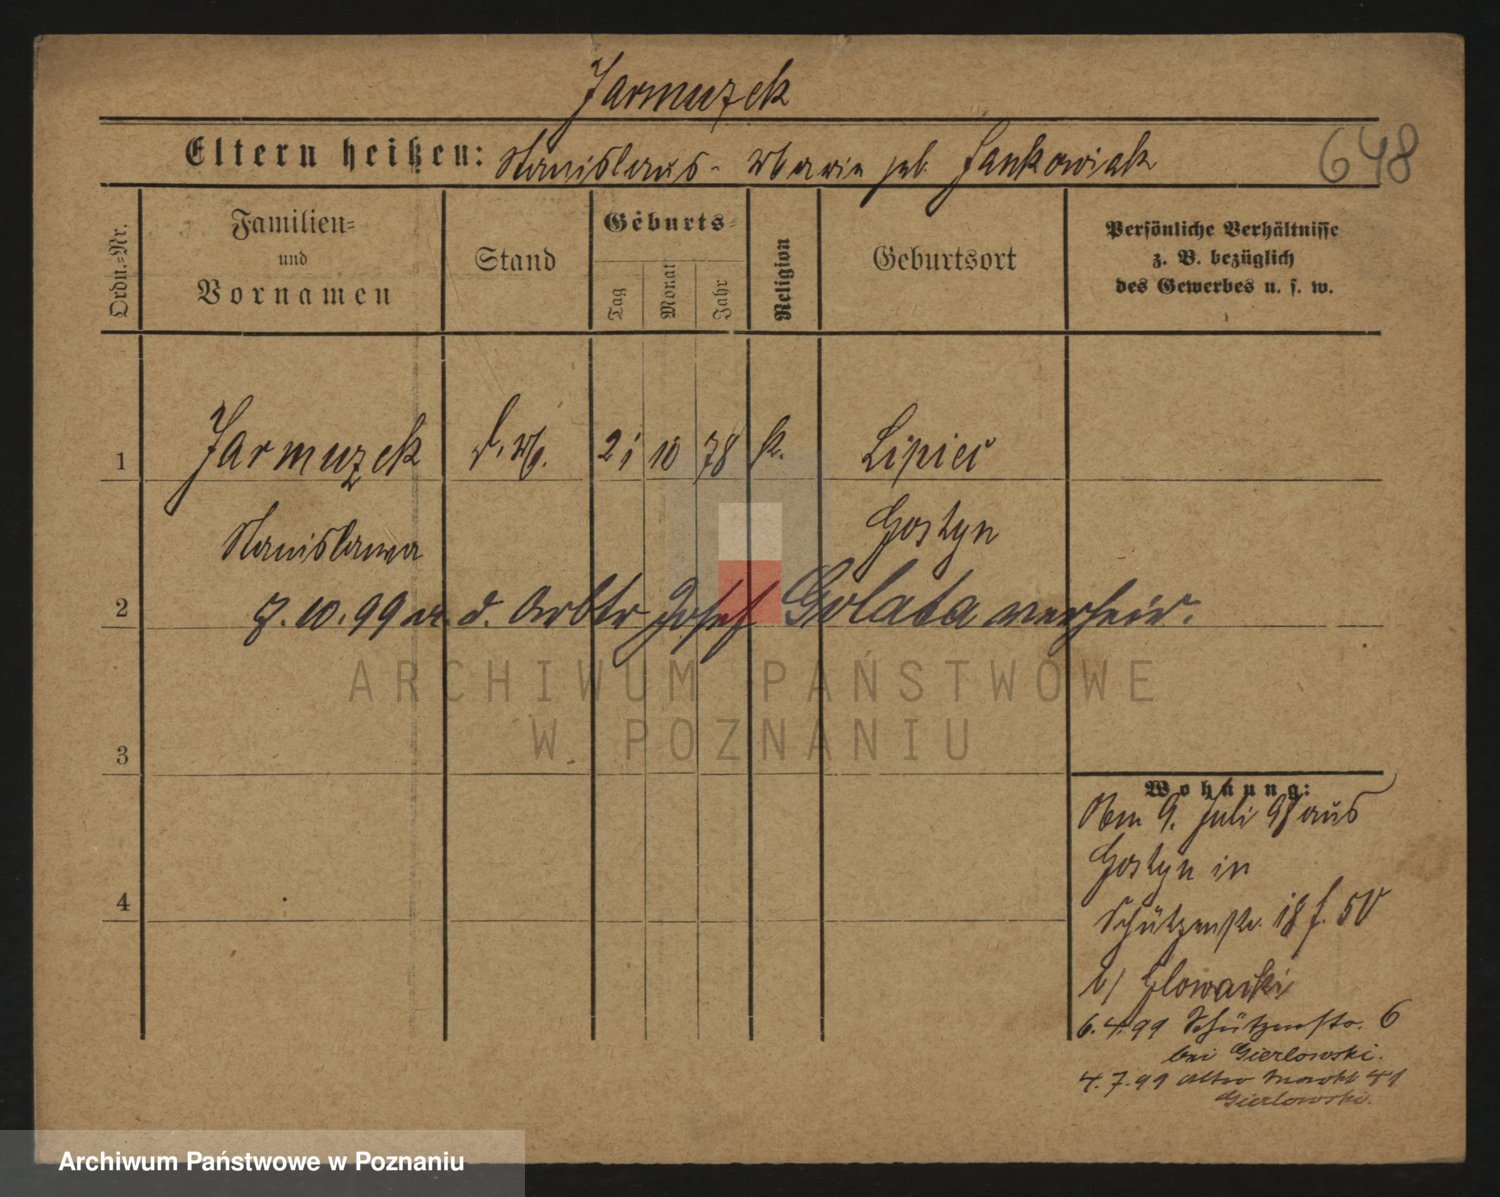 Jarmuzek
Eltern heißen: Stanislaus - Marie geb. Jankowiak
648
Ordn.-Nr.
Familien-
und
Vornamen
Stand
Geburts-
Tag
Monat
Jahr
Religion
Geburtsort
Persönliche Verhältnisse
z. B. bezüglich
des Gewerbes u. s. w.
1 Jarmuzek d. M. 21 10 78 k. Lipiec
Stanislawa Gostyn
2 7.10.99 m. d. Arbtr Josef Golata verheir.
ARCHIWUM PAŃSTWOWE
W POZNANIU
3
4
Wohnung:
Am 9. Juli 98 aus
Gostyn in
Schützenstr. 18 f. 50
b/ Glowacki
6.4.99 Schützenstr. 6
bei Gierlowski.
4.7.99 Alter Markt 41
Gierlowski.
Archiwum Państwowe w Poznaniu